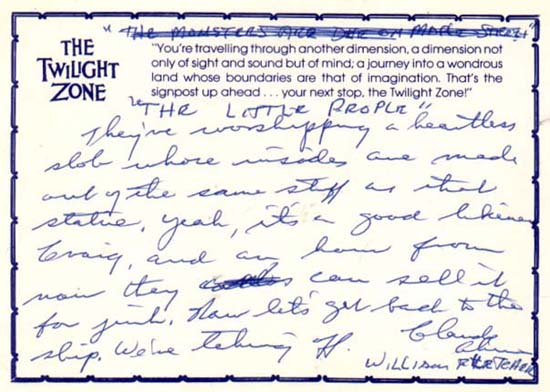 "THE MONSTERS ARE DUE ON MAPLE STREET"
THE
TWILIGHT
ZONE
"You're travelling through another dimension, a dimension not
only of sight and sound but of mind; a journey into a wondrous
land whose boundaries are that of imagination. That's the
signpost up ahead . . . your next stop, the Twilight Zone!"
"THE LITTLE PEOPLE"
They're worshipping a heartless
slob whose insides are made
out of the same stuff as that
statue. Yeah, it's a good likeness
Craig, and an hour from
now they can sell it
for junk. Now let's get back to the
ship. We're taking off. Claude
Akins
WILLIAM FLETCHER